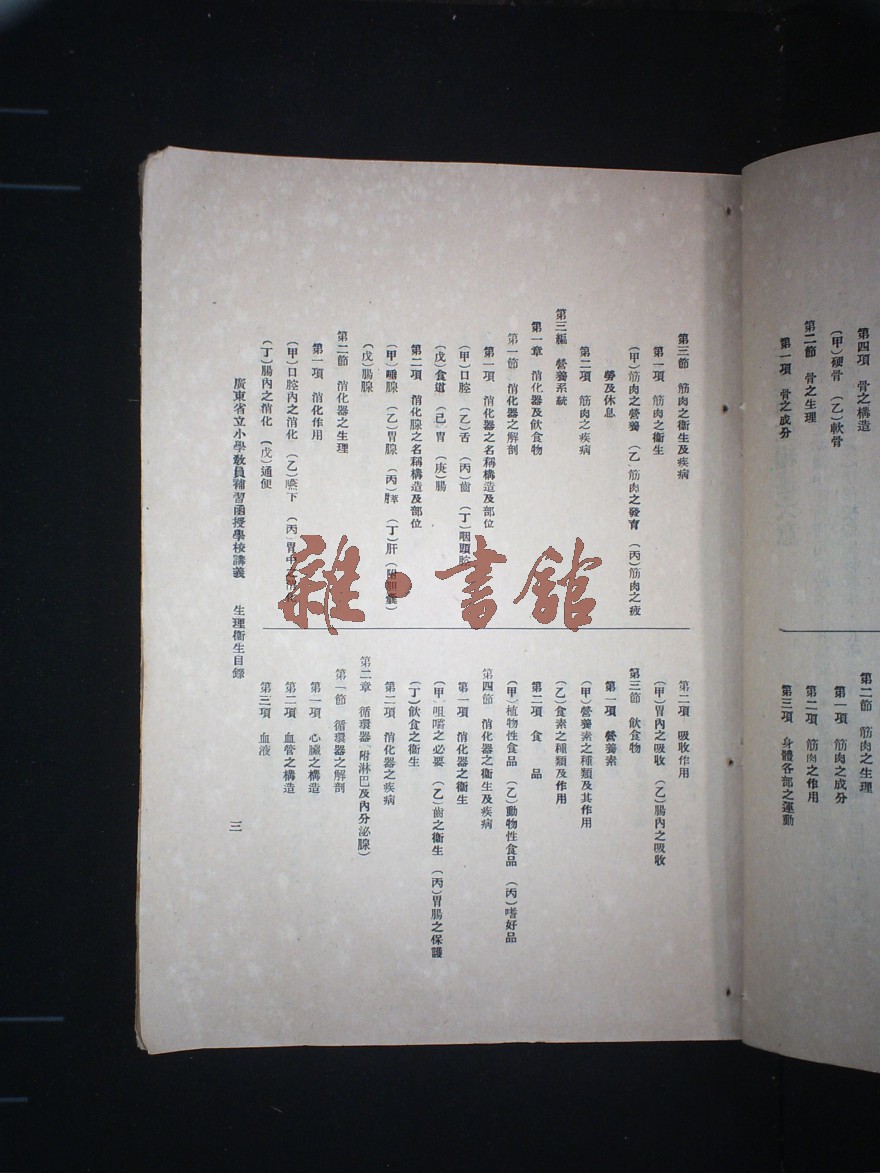 第四項　骨之構造
（甲）硬骨　（乙）軟骨
第二節　骨之生理
第一項　骨之成分
第二節　筋肉之生理
第一項　筋肉之成分
第二項　筋肉之作用
第三項　身體各部之運動
第三節　筋肉之衛生及疾病
第一項　筋肉之衛生
（甲）筋肉之營養　（乙）筋肉之發育　（丙）筋肉之疲
勞及休息
第二項　筋肉之疾病
第三編　營養系統
第一章　消化器及飲食物
第一節　消化器之解剖
第一項　消化器之名稱構造及部位
（甲）口腔　（乙）舌　（丙）齒　（丁）咽頭腔
（戊）食道　（已）胃　（庚）腸
第二項　消化腺之名稱構造及部位
（甲）唾腺　（乙）胃腺　（丙）膵　（丁）肝（附胆囊）
（戊）腸腺
第二節　消化器之生理
第一項　消化作用
（甲）口腔內之消化　（乙）嚥下　（丙）胃中之消化
（丁）腸內之消化　（戊）通便
第二項　吸收作用
（甲）胃內之吸收　（乙）腸內之吸收
第三節　飲食物
第一項　營養素
（甲）營養素之種類及其作用
（乙）食素之種類及作用
第二項　食　品
（甲）植物性食品　（乙）動物性食品　（丙）嗜好品
第四節　消化器之衛生及疾病
第一項　消化器之衛生
（甲）咀嚼之必要　（乙）齒之衛生　（丙）胃腸之保護
（丁）飲食之衛生
第二項　消化器之疾病
第二章　循環器（附淋巴及內分泌腺）
第一節　循環器之解剖
第一項　心臟之構造
第二項　血管之構造
第三項　血液
廣東省立小學敎員補習函授學校講義　生理衛生目錄　三
雜·書館